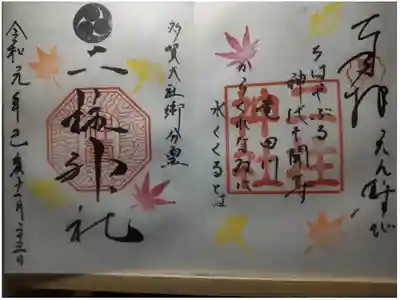 奉拝 えんむすび
ちはやぶる
神代も聞かず
竜田川
からくれなゐに
水くくるとは
多賀大社御分霊
神社
令和元年己亥十一月二十三日